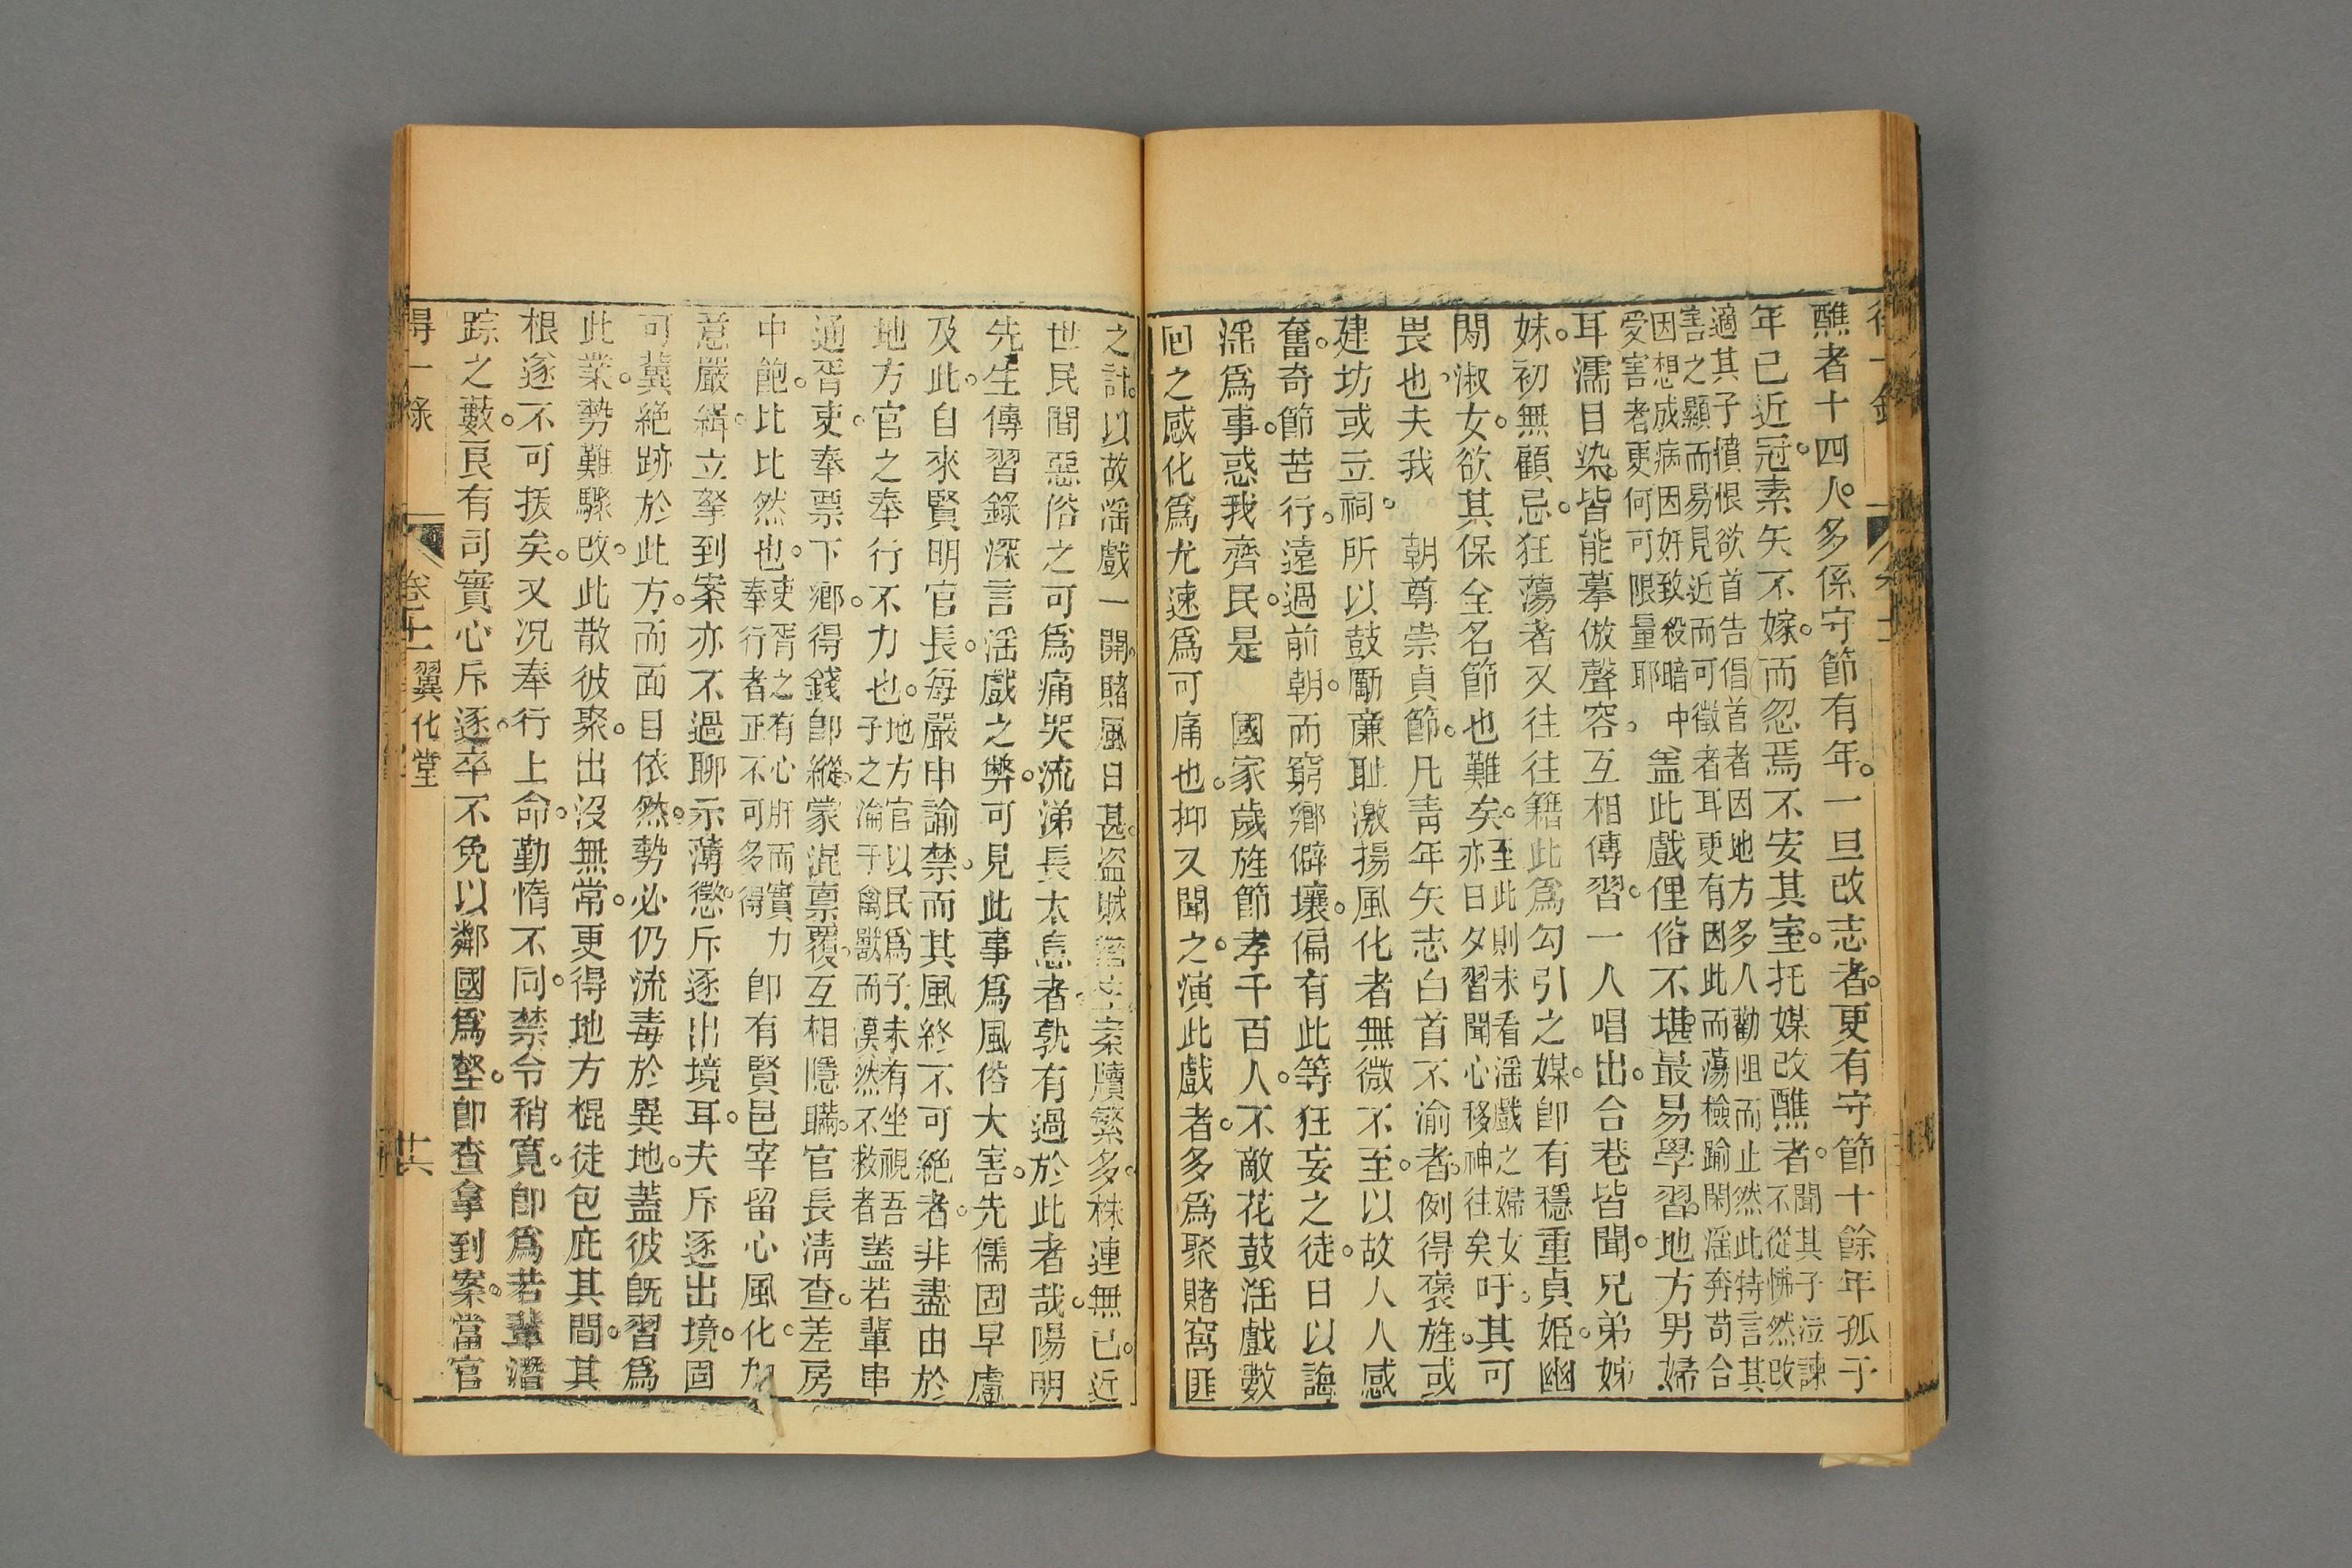 醮者十四人。多係守節有年。一旦改志者。更有守節十餘年孤子
年已近冠。素矢不嫁。而忽焉不安其室。托媒改醮者。聞其子泣諫不從怫然改
適其子憤恨欲首告倡首者因地方多人勸阻而止然此特言其
害之顯而易見近而可徵者耳更有因此而蕩檢踰閑滛奔苟合
因想成病因奸致殺暗中
受害者更何可限量耶
葢此戲俚俗不堪。最易學習。地方男婦
耳濡目染。皆能摹倣聲容。互相傳習。一人唱出。合巷皆聞。兄弟姊
妹。初無顧忌。狂蕩者又往往籍此爲勾引之媒。卽有穩重貞姬。幽
閒淑女。欲其保全名節也難矣。至此則未看滛戲之婦女亦日夕習聞心移神往矣吁。其可
畏也。夫我　朝尊崇貞節。凡靑年矢志白首不渝者。例得褒旌。或
建坊或立祠。所以鼓勵廉耻激揚風化者無微不至。以故人人感
奮。奇節苦行。遠過前朝。而窮鄉僻壤。偏有此等狂妄之徒。日以誨
滛爲事。惑我齊民。是　國家歲旌節孝千百人。不敵花鼓滛戲數
囘之感化爲尤速爲可痛也。抑又聞之。演此戲者。多爲聚賭窩匪
之計。以故滛戲一開。賭風日甚。盜賊案牘繁多。株連無已。近
世民間惡俗之可爲痛哭流涕長太息者。孰有過於此者哉。陽明
先生傳習錄深言滛戲之弊。可見此事爲風俗大害。先儒固早慮
及此。自來賢明官長。每嚴申諭禁。而其風終不可絕者。非盡由於
地方官之奉行不力也。地方官以民爲子未有坐視吾子之淪于禽獸而漠然不救者葢若輩串
通胥吏。奉票下鄉。得錢卽縱。蒙混禀覆。互相隱瞞。官長淸查。差房
中飽。比比然也。吏胥之有心肝而實力奉行者正不可多得卽有賢邑宰留心風化。加
意嚴緝。立拏到案亦不過聊示薄懲。斥逐出境耳。夫斥逐出境。固
可冀絕跡於此方。而面目依然。勢必仍流毒於異地。葢彼旣習爲
此業。勢難驟改。此散彼聚。出沒無常。更得地方棍徒包庇其間。其
根遂不可拔矣。又况奉行上命。勤惰不同。禁令稍寬。卽爲若輩潛
踪之藪。良有司實心斥逐。卒不免以鄰國爲壑。卽查拿到案。當官
得一錄　卷十一　翼化堂　廿六